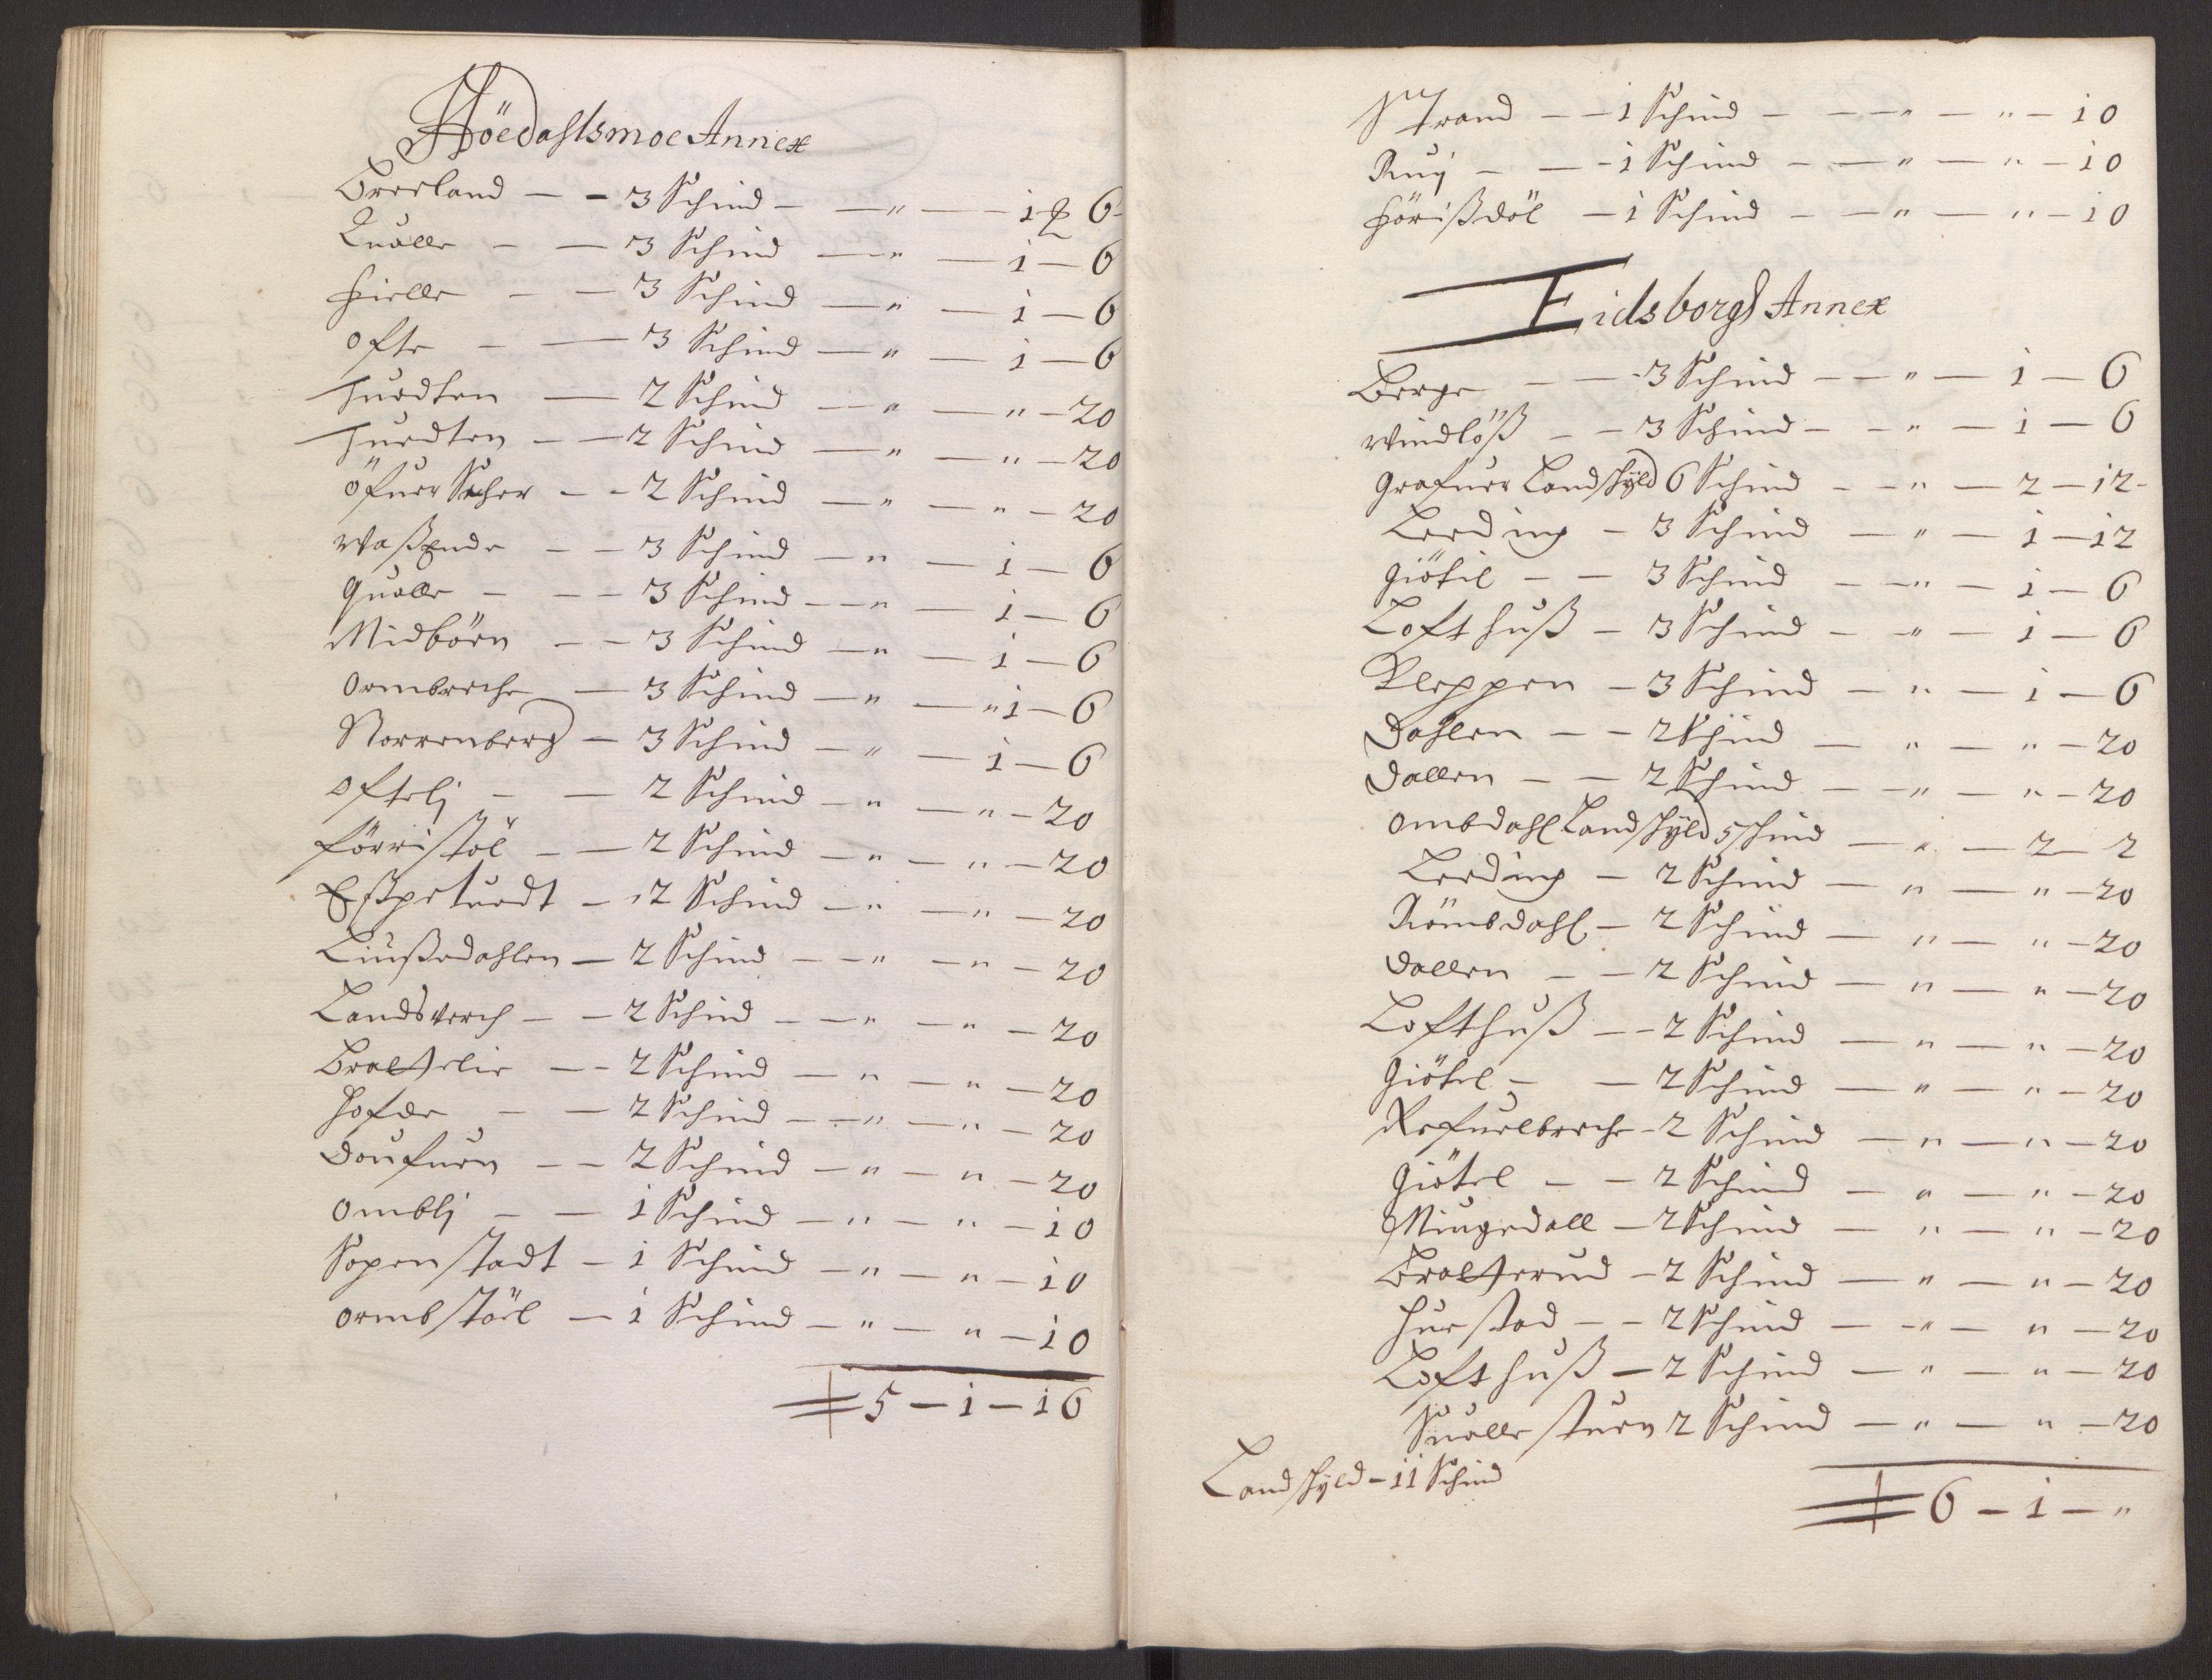 Höedahlsmoe Annex
Breeland — — 3 Schind — — " — 1 ₰ 6 -
Qualle — — 3 Schind — " — 1 — 6
Hielle — — 3 Schind — " — 1 — 6
Ofte — — 3 Schind — " — 1 — 6
Huedten — 2 Schind — " — " — 20
Huedten — — 2 Schind — " — " — 20
Öfuer — — 2 Schind — " — " — 20
Waßende — — 3 Schind — " — 1 — 6
Qualle — — 3 Schind — " — 1 — 6
Midböen — — 3 Schind — " — 1 — 6
Ormbreche — 3 Schind — " — " 1 — 6
Norrenberg — 3 Schind — " — 1 — 6
Oftelj — — 2 Schind — " — " — 20
Förristöl — — 2 Schind — " — " — 20
Espetuedt — 2 Schind — " — " — 20
Liußedahlen — 2 Schind — " — " — 20
Landsverch — — 2 Schind — " — " — 20
Brattelie — — 2 Schind — " — " — 20
Hofde — — 2 Schind — " — " — 20
Doufuen — — 2 Schind — " — " — 20
Omblj — — 1 Schind — " — " — 10
Sopenstadt — 1 Schind — " — " — 10
Ormbstöel — 1 Schind — " — " — 10
5 — 1 — 16
Strand — — 1 Schind — — " — " — 10
Ruij — — 1 Schind — — " — " — 10
Hörißdöl — 1 Schind — — " — " — 10
Eidsborgs Annex
Berge — — 3 Schind — — " — 1 — 6
Windlöß — — 3 Schind — — " — 1 — 6
Grafuer Landskÿld 6 Schind — — " — 2 — 12 -
Leeding — 3 Schind — " — 1 — 12
Giötil — — 3 Schind — — " — 1 — 6
Lofthuß — 3 Schind — — " — 1 — 6
Kleppen — 3 Schind — " — 1 — 6
Dahlen — — 2 Schind — " — " — 20
Dallen — — 2 Schind — — " — " — 20
Ombdahl Landskÿld 5 schind — " — 2 — 2
Leeding — 2 Schind — " — " — 20
Römbdahl — 2 Schind — " — " — 20
Dallen — — 2 Schind — " — " — 20
Lofthuß — — 2 Schind — " — " — 20
Giötel — — 2 Schind — " — " — 20
Refuelbreche — 2 Schind — " — " — 20
Giötel — — 2 Schind — " — " — 20
Miugedall — 2 Schind — " — " — 20
Bratterud — 2 Schind — " — " — 20
Huestad — — 2 Schind — — " — " — 20
Lofthuß — 2 Schind — " — " — 20
Suallestuen 2 Schind — " — " — 20
Landskÿld — 11 Schind
6 — 1 — "